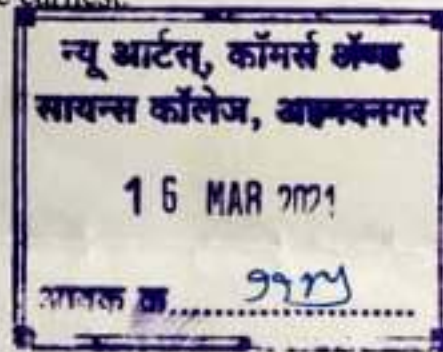 न्यू आर्टस्, कॉमर्स ॲण्ड
सायन्स कॉलेज, अहमदनगर
1 6 MAR 2021
आवक क्र..................